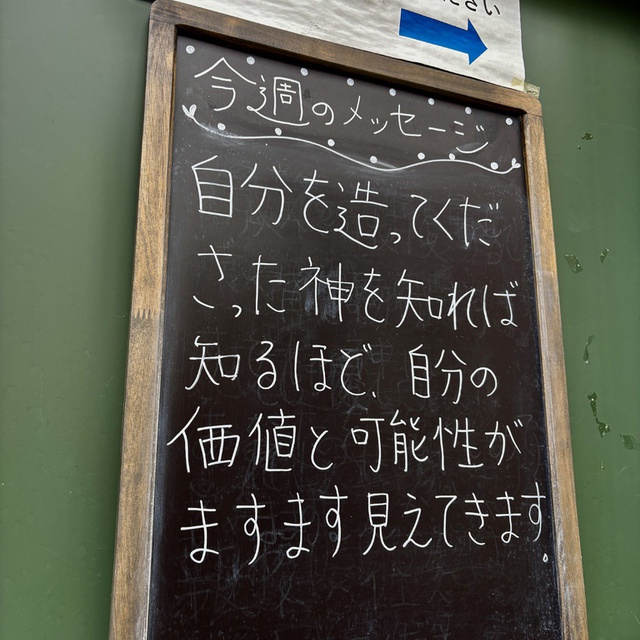 ださい
今週のメッセージ
自分を造ってくだ
さった神を知れば
知るほど、自分の
価値と可能性が
ますます見えてきます。